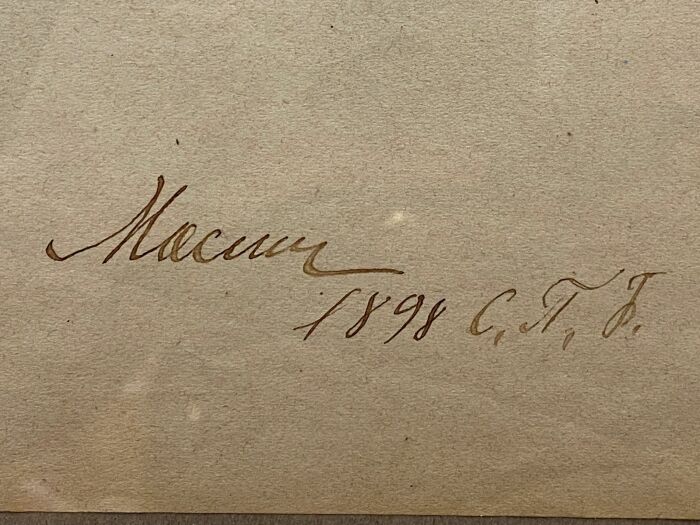 Масин
1898 С. П. Б.